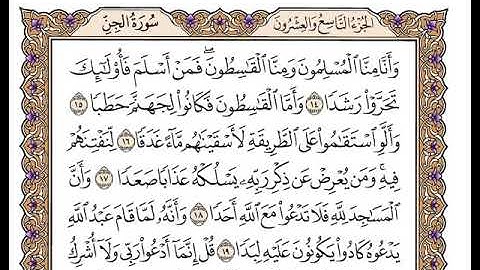 سُورَةُ الجِنِّ
الجُزْءُ التَّاسِعُ وَالعِشْرُونَ
وَأَنَّا مِنَّا ٱلْمُسْلِمُونَ وَمِنَّا ٱلْقَٰسِطُونَ ۖ فَمَنْ أَسْلَمَ فَأُو۟لَٰٓئِكَ
تَحَرَّوْا۟ رَشَدًا ١٤ وَأَمَّا ٱلْقَٰسِطُونَ فَكَانُوا۟ لِجَهَنَّمَ حَطَبًا ١٥
وَأَلَّوِ ٱسْتَقَٰمُوا۟ عَلَى ٱلطَّرِيقَةِ لَأَسْقَيْنَٰهُم مَّآءً غَدَقًا ١٦ لِّنَفْتِنَهُمْ
فِيهِ ۚ وَمَن يُعْرِضْ عَن ذِكْرِ رَبِّهِۦ يَسْلُكْهُ عَذَابًا صَعَدًا ١٧ وَأَنَّ
ٱلْمَسَٰجِدَ لِلَّهِ فَلَا تَدْعُوا۟ مَعَ ٱللَّهِ أَحَدًا ١٨ وَأَنَّهُۥ لَمَّا قَامَ عَبْدُ ٱللَّهِ
يَدْعُوهُ كَادُوا۟ يَكُونُونَ عَلَيْهِ لِبَدًا ١٩ قُلْ إِنَّمَآ أَدْعُوا۟ رَبِّى وَلَآ أُشْرِكُ